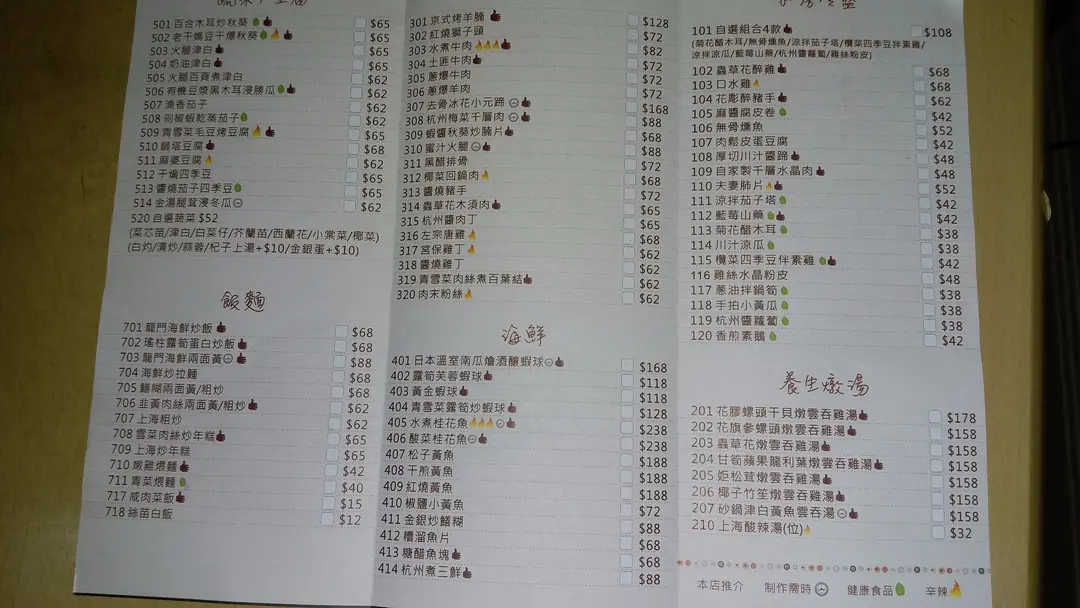 501 百合木耳炒秋葵 $65
502 老干媽豆干爆秋葵 $68
503 火腿津白 $65
504 奶油津白 $65
505 火腿百頁煮津白 $65
506 有機豆漿黑木耳浸勝瓜 $65
507 漁香茄子 $62
508 剁椒蝦乾蒸茄子 $62
509 青雪菜毛豆烤豆腐 $65
510 鍋塔豆腐 $68
511 麻婆豆腐 $62
512 干煸四季豆 $65
513 醬燒茄子四季豆 $65
514 金湯腿茸浸冬瓜 $62
520 自選蔬菜 $52
(菜芯苗/津白/白菜仔/芥蘭苗/西蘭花/小棠菜/椰菜)
(白灼/清炒/蒜蓉/杞子上湯+$10/金銀蛋+$10)
飯麵
701 龍門海鮮炒飯 $68
702 瑤柱露筍蛋白炒飯 $68
703 龍門海鮮兩面黃 $88
704 海鮮炒拉麵 $68
705 鱔糊兩面黃/粗炒 $68
706 韭黃肉絲兩面黃/粗炒 $62
707 上海粗炒 $62
708 雪菜肉絲炒年糕 $65
709 上海炒年糕 $65
710 燉雞煨麵 $42
711 青菜煨麵 $40
717 咸肉菜飯 $15
718 絲苗白飯 $12
301 京式烤羊腩 $128
302 紅燒獅子頭 $72
303 水煮牛肉 $82
304 土匪牛肉 $72
305 蔥爆牛肉 $72
306 蔥爆羊肉 $72
307 去骨冰花小元蹄 $168
308 杭州梅菜千層肉 $88
309 蝦醬秋葵炒腩片 $68
310 蜜汁火腿 $88
311 黑醋排骨 $72
312 椰菜回鍋肉 $68
313 醬燒豬手 $72
314 蟲草花木須肉 $65
315 杭州醬肉丁 $65
316 左宗唐雞 $68
317 宮保雞丁 $62
318 醬燒雞丁 $62
319 青雪菜肉絲煮百葉結 $62
320 肉末粉絲 $62
海鮮
401 日本溫室南瓜燴酒釀蝦球 $168
402 露筍芙蓉蝦球 $118
403 黃金蝦球 $118
404 青雪菜露筍炒蝦球 $128
405 水煮桂花魚 $238
406 酸菜桂花魚 $238
407 松子黃魚 $188
408 干煎黃魚 $188
409 紅燒黃魚 $188
410 椒鹽小黃魚 $72
411 金銀炒鱔糊 $88
412 糟溜魚片 $68
413 糖醋魚塊 $68
414 杭州煮三鮮 $88
101 自選組合4款 $108
(菊花醋木耳/無骨燻魚/涼拌茄子塔/欖菜四季豆拌素雞/
涼拌涼瓜/藍莓山藥/杭州醬蘿蔔/雞絲粉皮)
102 蟲草花醉雞 $68
103 口水雞 $68
104 花彫醉豬手 $62
105 麻醬腐皮卷 $42
106 無骨燻魚 $52
107 肉鬆皮蛋豆腐 $42
108 厚切川汁醬蹄 $48
109 自家製千層水晶肉 $48
110 夫妻肺片 $52
111 涼拌茄子塔 $42
112 藍莓山藥 $42
113 菊花醋木耳 $38
114 川汁涼瓜 $38
115 欖菜四季豆伴素雞 $42
116 雞絲水晶粉皮 $48
117 蔥油拌鍋筍 $38
118 手拍小黃瓜 $38
119 杭州醬蘿蔔 $38
120 香煎素鵝 $42
養生燉湯
201 花膠螺頭干貝燉雲吞雞湯 $178
202 花旗參螺頭燉雲吞雞湯 $158
203 蟲草花燉雲吞雞湯 $158
204 甘筍蘋果龍利葉燉雲吞雞湯 $158
205 姫松茸燉雲吞雞湯 $158
206 椰子竹笙燉雲吞雞湯 $158
207 砂鍋津白黃魚雲吞湯 $158
210 上海酸辣湯(位) $32
本店推介 制作需時 健康食品 辛辣